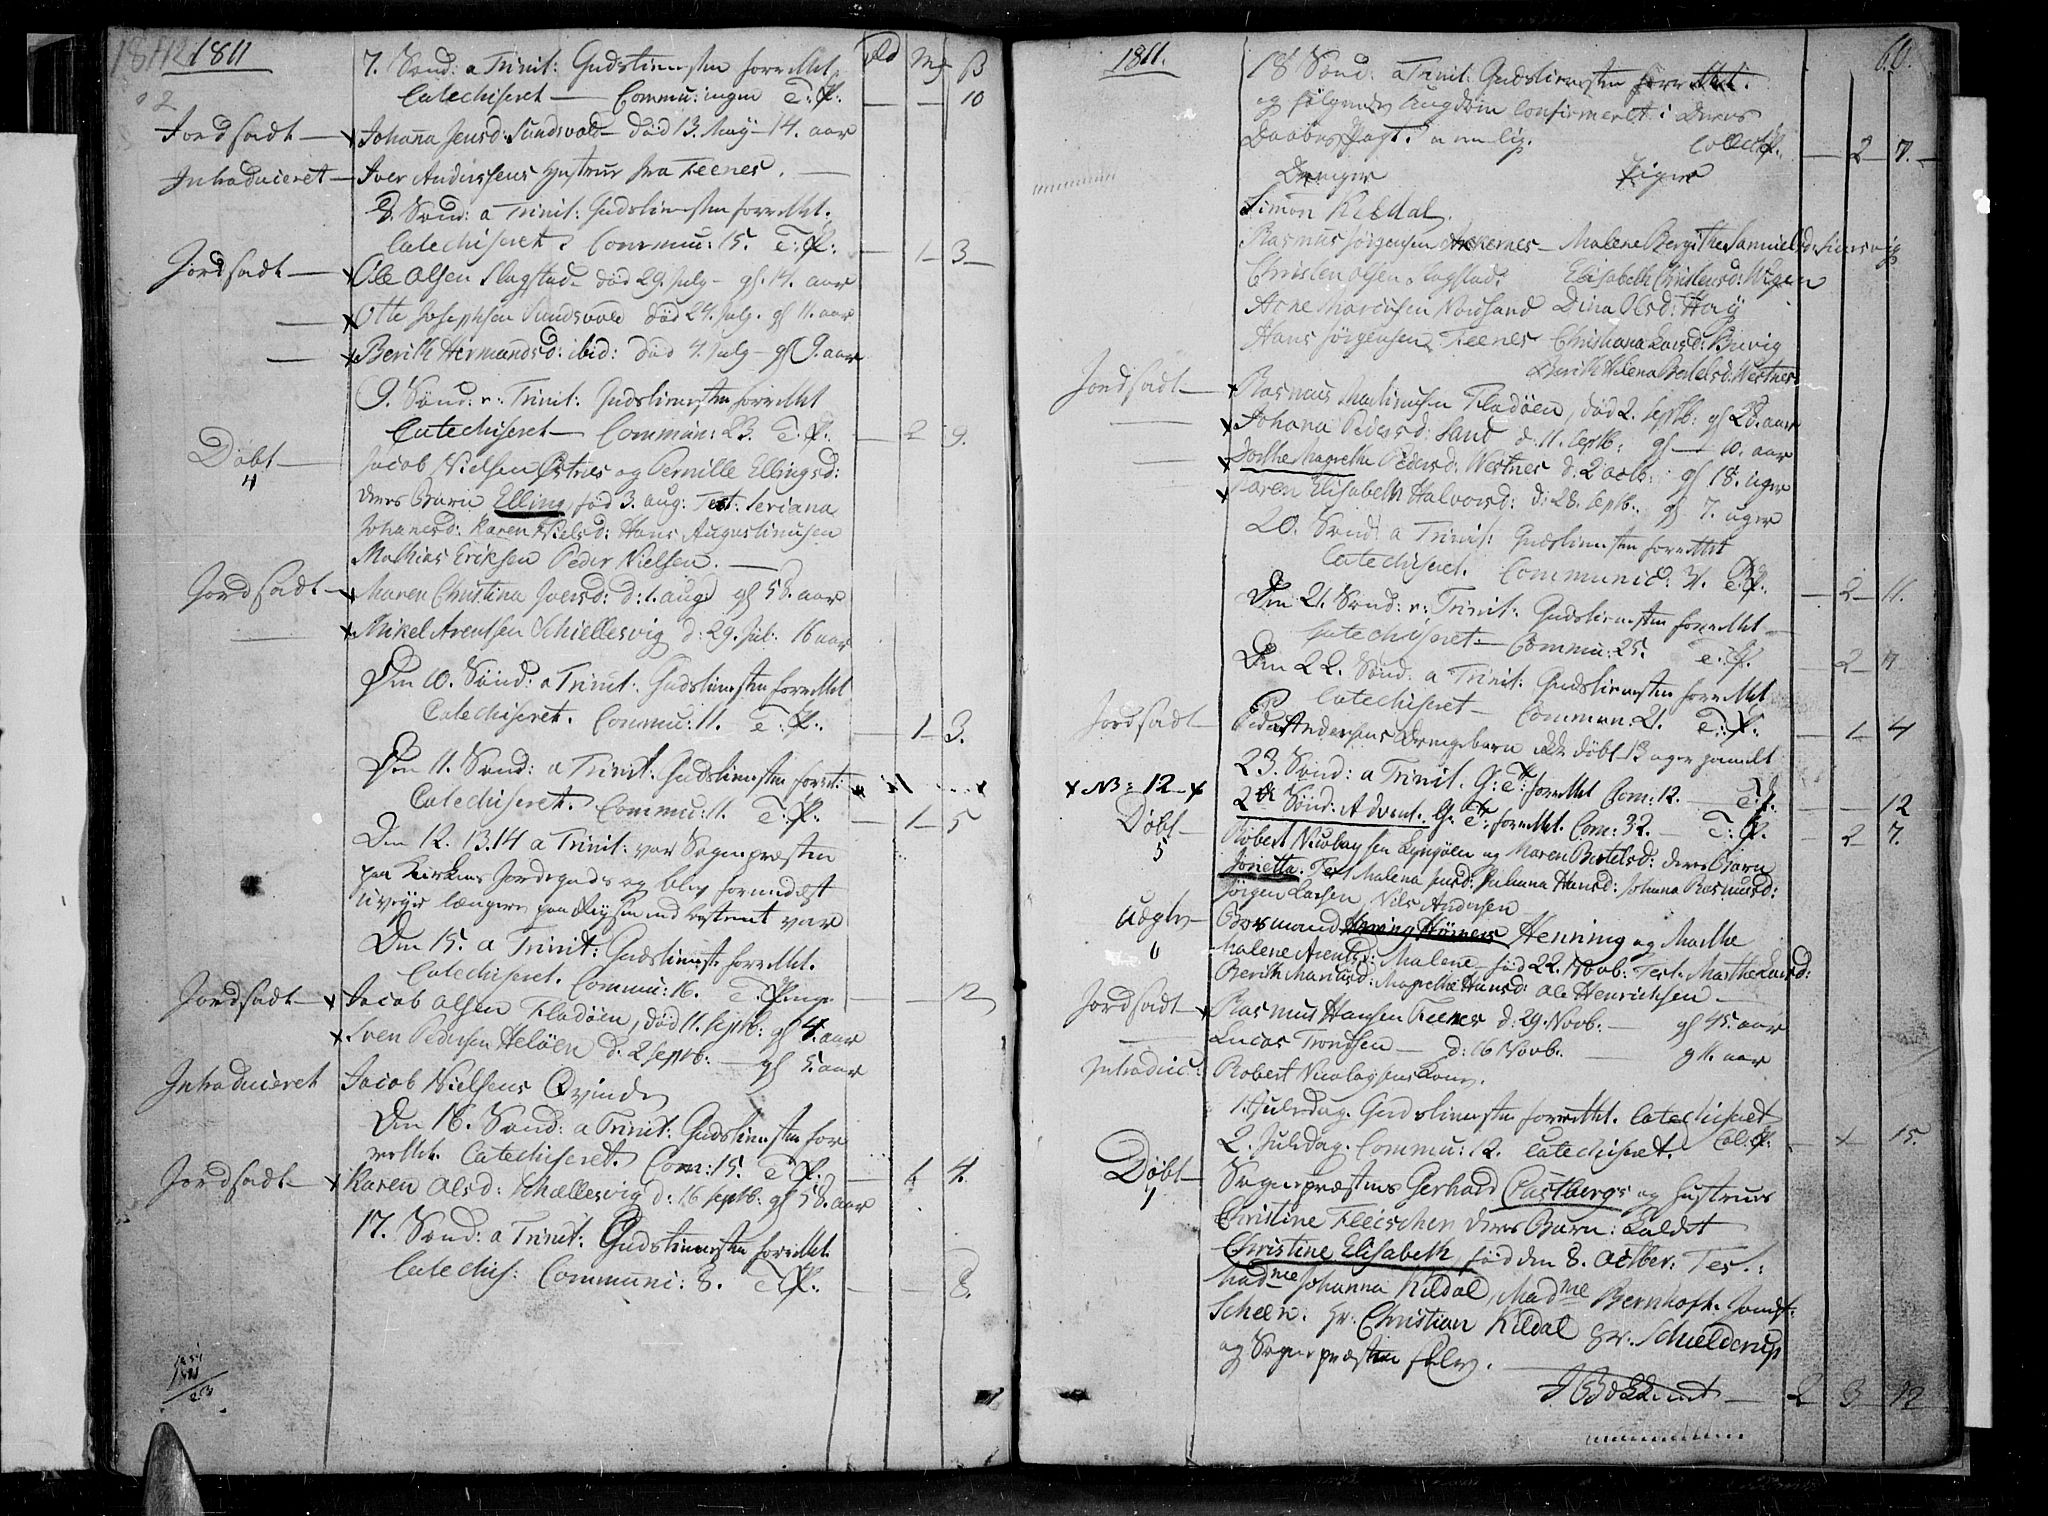 1811
7. Sønd: a Trinit: Gudstienesten forrettet
Rd Mk ß
Catechiseret — Commu: ingen T: P. — — 10
Jordsadt — x Johana Jensd: Sundsvold død 13. May 14. aar
Introduceret — Iver Anderssens Hustrue fra Teenes.
8. Sønd: a Trinit: Gudstienesten forrettet.
Catechiseret. Commu: 15. T: P: — 1 — 3 —
Jordsadt — x Ole Olsen Slagstad død 29. July — gl. 14. aar
— x Otte Josephsen Sundsvold død 24. July. gl 11. aar
— x Berith Hermandsd: ibid: død 4. July — gl 9. aar
9. Sønd: a: Trinit: Gudstienesten forrettet
Catechiseret — Commun: 23. T. P. — 2 9.
Døbt — Jacob Nielsen Østnes og Pernille Ellingsd:
4
deres Barn Elling, fød 3. aug: Test: Seriana
Johanesd: Karen Nielsd: Hans Augustinusen
Mathias Eriksen Peder Nielsen. —
Jordsadt — x Maren Christina Iversd: d: 1. aug: gl 58. aar
— x Mikel Arentsen Schiellesvig d: 29. Jul: 16 aar
Den 10. Sønd: a Trinit: Gudstienesten forrettet
Catechiseret. Commu: 11. T: P: — 1 — 3.
Den 11. Sønd: a Trinit: Gudstienesten forret:
Catechiseret. Commu: 11. T: P: — 1 — 5
Den 12. 13. 14 a Trinit: var Sognepræsten
paa Kirkens Jordegods og blev formedelst
uveyr længere paa Reysen end bestemt var
Den 15. a Trinit: Gudstienest forrettet.
Catechiseret. Commu: 16. T. Penge — — 12
Jordsadt — x Jacob Olsen Fladøen, død 11. Septb: gl 4. aar
x Sven Pedersen Heløen d. 2 Septb: — gl 5. aar
Introduceret Jacob Nielsens Qvinde
Den 16. Sønd: a Trinit: Gudstienesten for
rettet. Catechiseret. Com: 15. T: P: — 1. 4.
Jordsadt — x Karen Olsd: Schællesvig d: 16 Septb: gl 58. aar
17. Sønd: a Trinit: Gudstienesten forrettet
Catechis: Communi: 8. T: P: — — 8.
1811.
60.
18 Sønd: a Trinit: Gudstienesten forrettet.
og følgende Ungdom Confirmeret i Deres
Daabes Pagt. nemlig. Collect P. — 2 — 7. —
Drenger Piger
Simon Kildal.
Rasmus Jørgensen Akernes — Malene Bergithe Samuelsd:
Christen Olsen Slagstad. Elisabeth Christensd: Wigen
Arne Marcusen Nordsand Dina Olsd: Høy
Hans Jørgensen Teenes Christiana Larsd: Brevig
Berith Helena Bertelsd: Westnes
Jordsadt — x Rasmus Martinusen Fladøen, død 2. Septb: gl 28. aar
— x Johana Pedersd: Sand d: 11. Septb: gl — 10. aar
— x Dorthe Magrethe Pedersd: Westnes d. 2 octb: gl 18. uger
x Karen Elisabeth Halvorsd: d: 28. Septb. gl 7. uger
20. Sønd: a Trinit: Gudstienesten forrettet
Catechiseret. Communic: 31. T: P. — 2 — 11.
Den 21. Sønd: a: Trinit: Gudstienesten forrettet —
Catechiseret — Commu: 25. T: P. — 2 — 7
Den 22. Sønd: a Trinit: Gudstienesten forrettet
Catechiseret — Commun. 21. T: P. — 1 — 4
Jordsadt — Peder Andersens Drengebarn ikke døbt 13 uger gamelt
23. Sønd: a Trinit. G: T: forrettet Com: 12. — T: P. — 12
x NB: 12 — x
2de Sønd: Advent. G: T: forrettet. Com: 32. — T: P. — 2 — 7.
Døbt — Robert Nicolaysen Lyngøen og Maren Bertelsd: deres Barn
5
Jonetta. Test Malena Jensd: Juliana Hansd: Johana Rasmusd:
Jørgen Larsen, Nils Andersen
Uægte — Borsmand Henning og Marthe
6
Malene Arentsd: Malene fød 22. Novb: Test. Marthe Larsd:
Berith Mariusd: Magrethe Hansd: Ole Henrichsen —
Jordsadt — x Rasmus Hansen Teenes d: 29. Novb. — gl 45. aar
— Lucas Trondsen — d: 16 Novb. — gl 11. aar
Introduc: Robert Nicolaysens Kone.
1. Juledag. Gudstienesten forrettet. Catechiseret
2. Juledag. Commu: 12. Catechiseret. Col: P: — x — 15.
Døbt — Sognepræstens Gerhard Castbergs og Hustrues
7
Christine Fleischer deres Barn: Kaldet
Christine Elisabeth, fød den 8. Octber. Test:
Madme Johanna Kildal, Madme Bernhoft. Jomf:
Scheen. Hr. Christian Kildal Hr. Schielderup
og Sognepræsten selv. —
2 3 12